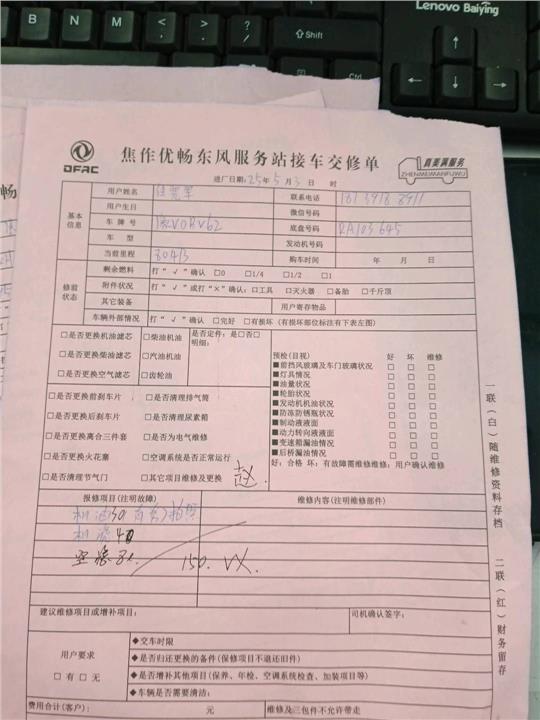 Lenovo Baiying
B
N
M
Shift
Ctrl
DFAC
焦作优畅东风服务站接车交修单
真美满服务
ZHENMEIMANFUWU
进厂日期:25年5月3日 时
基本信息
用户姓名
联系电话
用户生日
微信号码
车牌号 V0RV62
底盘号码 RA103645
车型
发动机号码
当前里程 80413
购车时间 年 月 日
修前状态
剩余燃料 打“√”确认 □0 □1/4 □1/2 □1
附件状况 打“√”或打“×”确认:□工具 □灭火器 □备胎 □千斤顶
其它装备
用户寄存物品
车辆外部情况 打“√”确认 □完好 □有损坏(有损部位标注有下表左图)
□是否更换机油滤芯 □柴油机油
□是否更换柴油滤芯 □汽油机油
□是否更换空气滤芯 □齿轮油
是否定件:是□否□
明细:
□是否更换前刹车片 □是否清理排气筒
□是否更换后刹车片 □是否清理尿素箱
□是否更换离合三件套 □是否为电气维修
□是否更换火花塞 □空调系统是否正常运行
□是否清理节气门 □其它项目维修及更换
赵
预检(目视) 好 坏 维修
■前挡风玻璃及车门玻璃状况 □ □ □
■灯具情况 □ □ □
■油量状况 □ □ □
■轮胎状况 □ □ □
■发动机机油状况 □ □ □
■防冻防锈瓶状况 □ □ □
■制动液液面 □ □ □
■动力转向液液面 □ □ □
■变速箱漏油情况 □ □ □
■后桥漏油情况 □ □ □
好:合格 坏:有故障需维修维修:用户确认维修
报修项目(注明故障)
维修内容(注明维修部件)
机油
机滤
空滤
150. VX.
建议维修项目或增补项目:
司机确认签字:
用户要求
□有 □无
◆交车时限
◆是否归还更换的备件(保修项目不退还旧件)
◆是否增补其他项目(保养、年检、空调系统检查、加装项目等)
◆车辆是否需要清洁:
费用合计(客户): 元
维修及三包件不允许带走
一联(白)随维修资料存档
二联(红)财务留存